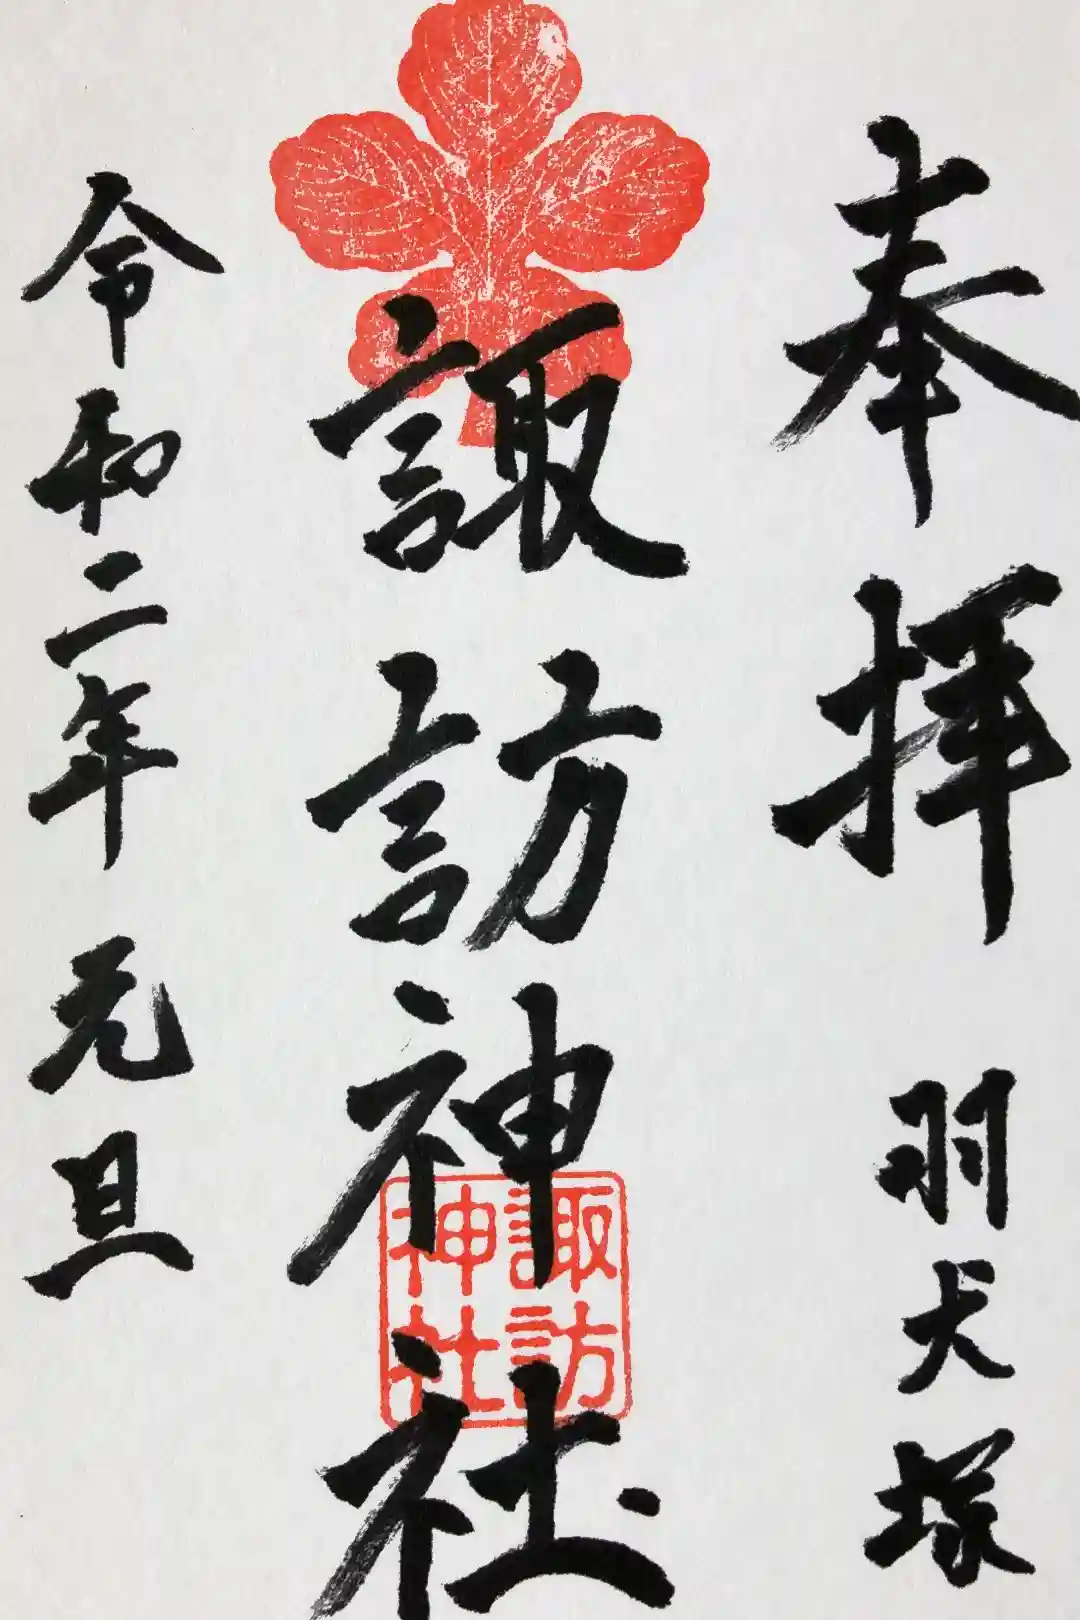 奉拝 羽犬塚
諏訪神社
諏訪
神社
令和二年 元旦